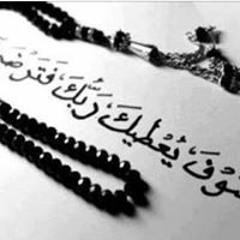 سَوْفَ يُعْطِيكَ رَبُّكَ فَتَرْضَ